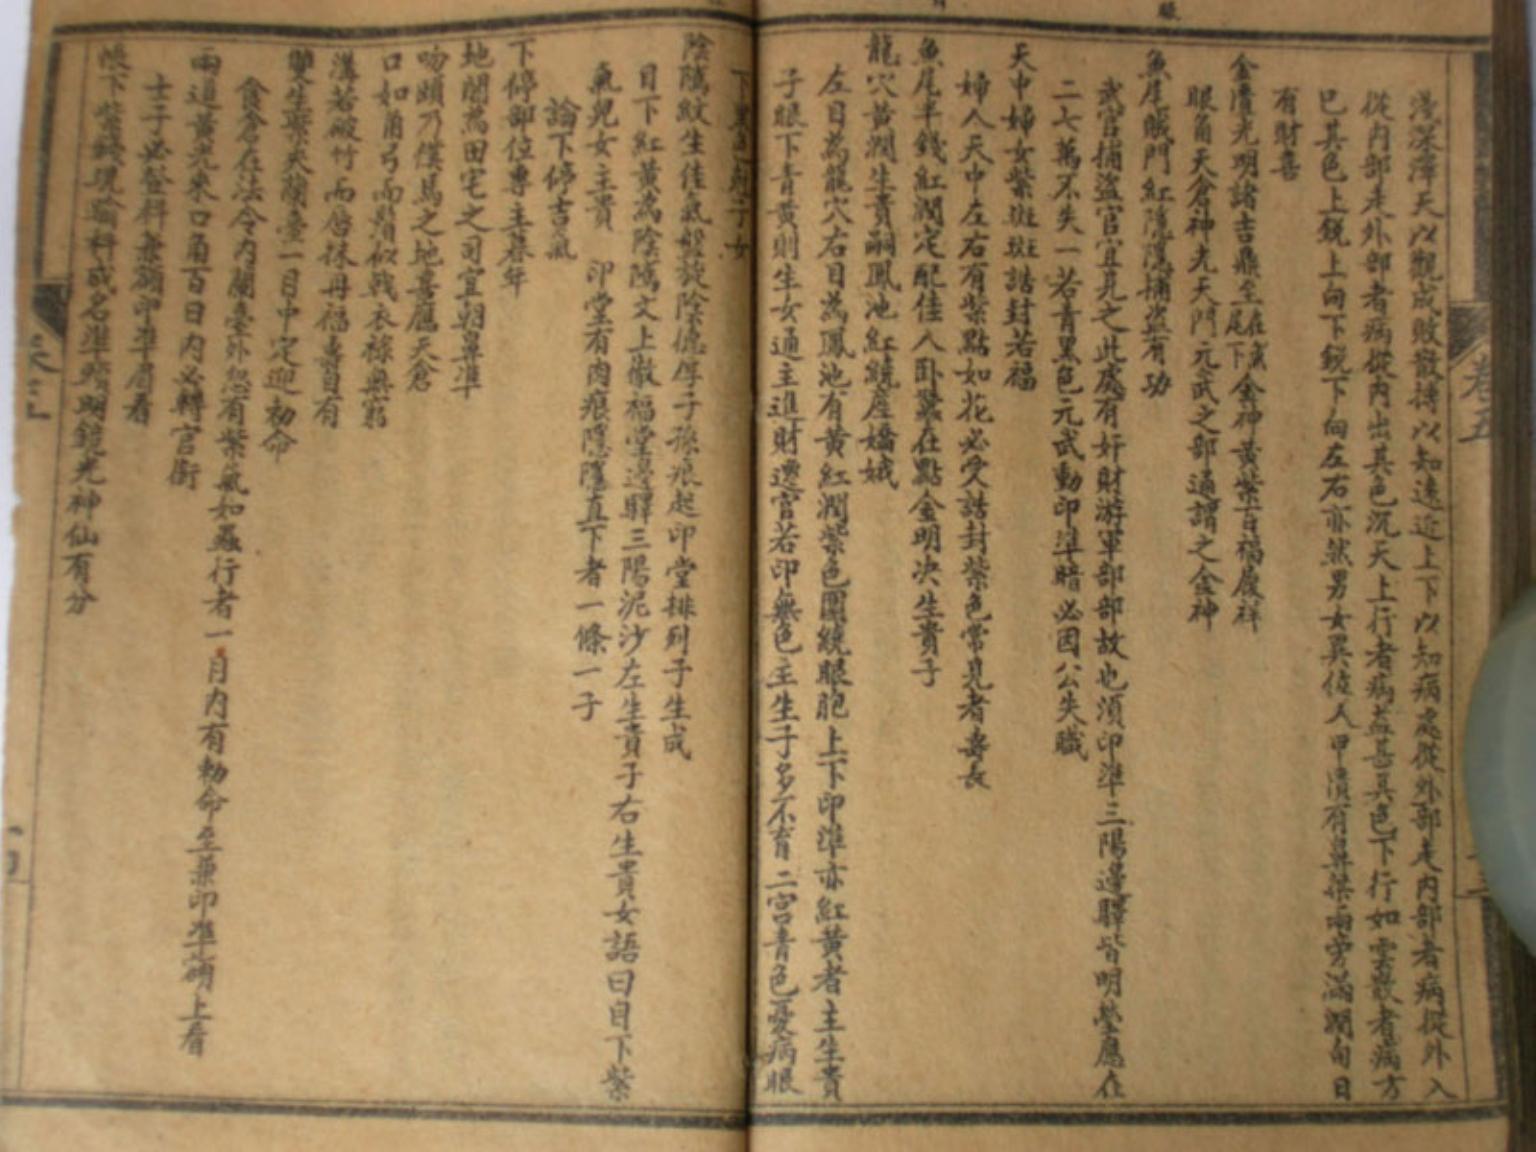 淺深澤夭以觀成敗散摶以知遠近上下以知病處從外部走內部者病從外入
從內部走外部者病從內出其色沉夭上行者病益甚其色下行如雲散者病方
巳其色上銳上向下銳下向左右亦然男女異位人甲潰有鼻梁兩旁滿潤旬日
有財喜
金匱光明諸吉鼎至在尾下金神黃紫百福履祥
眼角天倉神光天門元武之部通謂之金神
魚尾賊門紅隱隱捕盜有功
武官捕盜官宜見之此處有奸財游軍部部故也須印準三陽邊驛皆明瑩應在
二七萬不失一若青黑色元武動印準暗必因公失職
天中婦女紫斑斑誥封若福
婦人天中左右有紫點如花必受誥封紫色常見者壽長
魚尾半錢紅潤定配佳人臥蠶在點金明決生貴子
龍穴黃潤生貴嗣鳳池紅繞產嬌娥
左目為龍穴右目為鳳池有黃紅潤紫色圍繞眼胞上下印準亦紅黃者主生貴
子眼下青黃則生女通主進財遷官若印無色主生子多不育二宮青色憂病眼
陰隲紋生佳氣盤旋陰德厚子孫痕起印堂排列子生成
目下紅黃為陰隲文上徹福堂邊驛三陽泥沙左生貴子右生貴女語曰目下紫
氣兒女主貴 印堂有肉痕隱隱直下者一條一子
論下停吉氣
下停部位專主暮年
地閣為田宅之司宜朝鼻準
吻頤乃僕馬之地喜應天倉
口如角弓而鬚似戟衣祿無窮
溝若破竹而唇抹丹福壽自有
雙生聚天蘭臺一月中定迎勅命
食倉在法令內蘭臺外忽有紫氣如蟲行者一月內有勅命至兼印準顴上看
兩道黃光來口角百日內必轉官銜
士子必登科兼顴印準眉看
帳下紫錢現掄科成名準踏明鏡光神仙有分
卷五